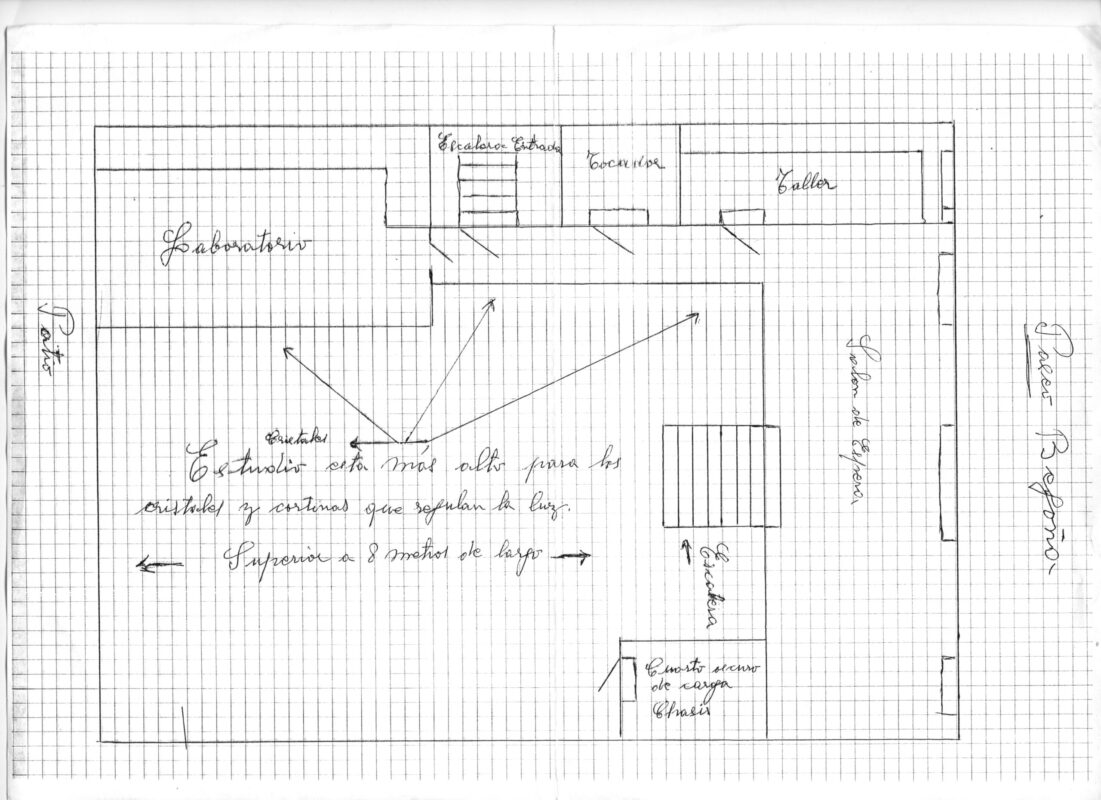 Escalera Entrada
Tocador
Taller
Laboratorio
Patio
Salon de Espera
Paseo Begoña
Cristales
Estudio esta más alto para los
cristales y cortinas que regulan la luz.
Superior a 8 metros de largo
Escalera
Cuarto oscuro
de carga
Chasis